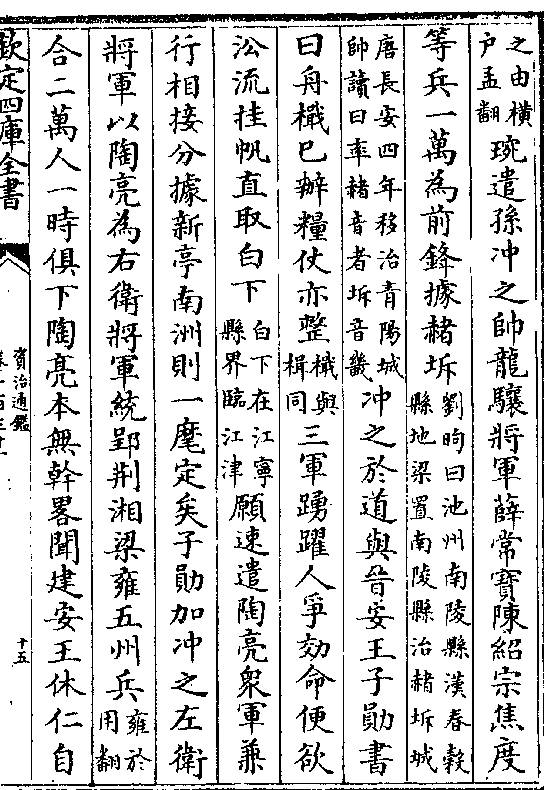 之由橫
户孟翻
琬遣孫冲之帥龍驤將軍薛常寶陳紹宗焦度
等兵一萬為前鋒據赭圻
劉昫曰池州南陵縣漢春穀
縣地梁置南陵縣治赭圻城
唐長安四年移治青陽城
帥讀曰率赭音者圻音畿
冲之於道與晉安王子勛書
曰舟檝已辦糧仗亦整
檝與
楫同
三軍踴躍人爭効命便欲
沿流挂帆直取白下
白下在江寧
縣界臨江津
願速遣陶亮衆軍兼
行相接分據新亭南洲則一麾定矣子勛加冲之左衛
將軍以陶亮為右衛將軍統郢荆湘梁雍五州兵
雍於
用翻
合二萬人一時俱下陶亮本無幹畧聞建安王休仁自
欽定四庫全書
資治通鑑
卷一百三十一
十五